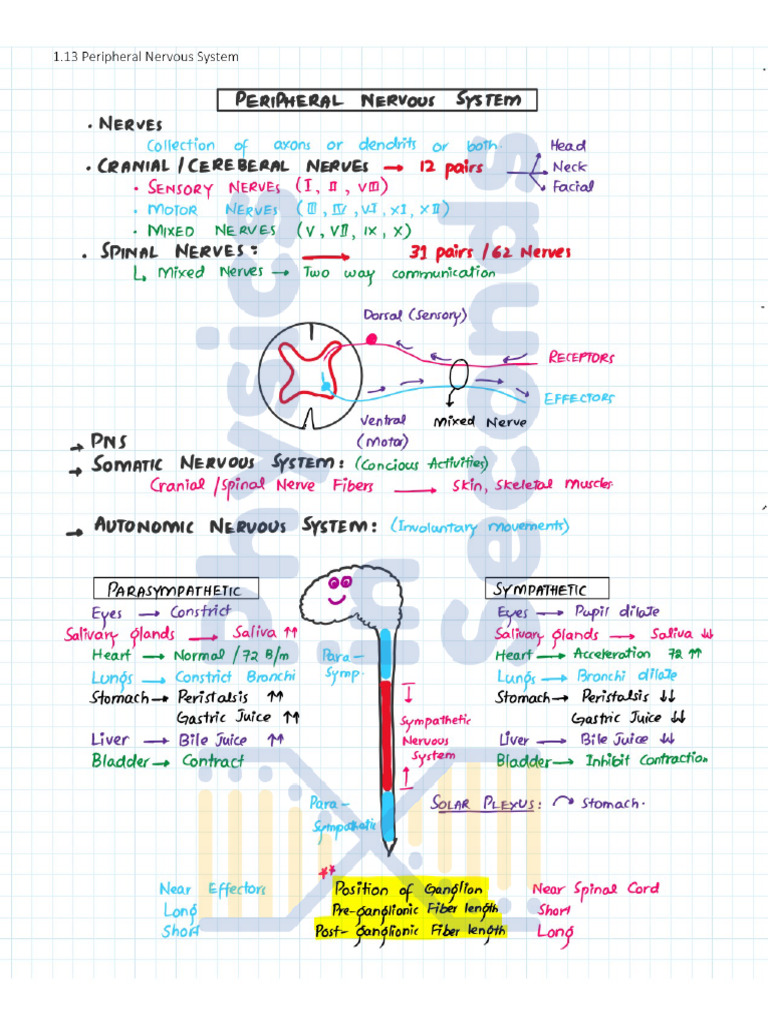 1.13 Peripheral Nervous System
PERIPHERAL NERVOUS SYSTEM
• NERVES
Collection of axons or dendrits or both.
• CRANIAL / CEREBERAL NERVES → 12 pairs
Head
Neck
Facial
• SENSORY NERVES (I, II, VIII)
• MOTOR NERVES (III, IV, VI, XI, XII)
• MIXED NERVES (V, VII, IX, X)
• SPINAL NERVES: → 31 pairs / 62 Nerves
↳ Mixed Nerves → Two way communication
Dorsal (Sensory)
RECEPTORS
EFFECTORS
Ventral
(Motor)
Mixed Nerve
→ PNS
→ SOMATIC NERVOUS SYSTEM: (Concious Activities)
Cranial / Spinal Nerve Fibers → Skin, Skeletal Muscles.
→ AUTONOMIC NERVOUS SYSTEM: (Involuntary movements)
PARASYMPATHETIC
Eyes → Constrict
Salivary glands → Saliva ↑↑
Heart → Normal / 72 B/m
Lungs → Constrict Bronchi
Stomach → Peristalsis ↑↑
Gastric Juice ↑↑
Liver → Bile Juice ↑↑
Bladder → Contract
Para-
Symp.
Sympathetic
Nervous
System
Para-
Sympathetic
SYMPATHETIC
Eyes → Pupil dilate
Salivary glands → Saliva ↓↓
Heart → Acceleration 72 ↑↑
Lungs → Bronchi dilate
Stomach → Peristalsis ↓↓
Gastric Juice ↓↓
Liver → Bile Juice ↓↓
Bladder → Inhibit Contraction
SOLAR PLEXUS: Stomach.
**
Near Effectors Position of Ganglion Near Spinal Cord
Long Pre-ganglionic Fiber length Short
Short Post-ganglionic Fiber length Long
physics
in
seconds